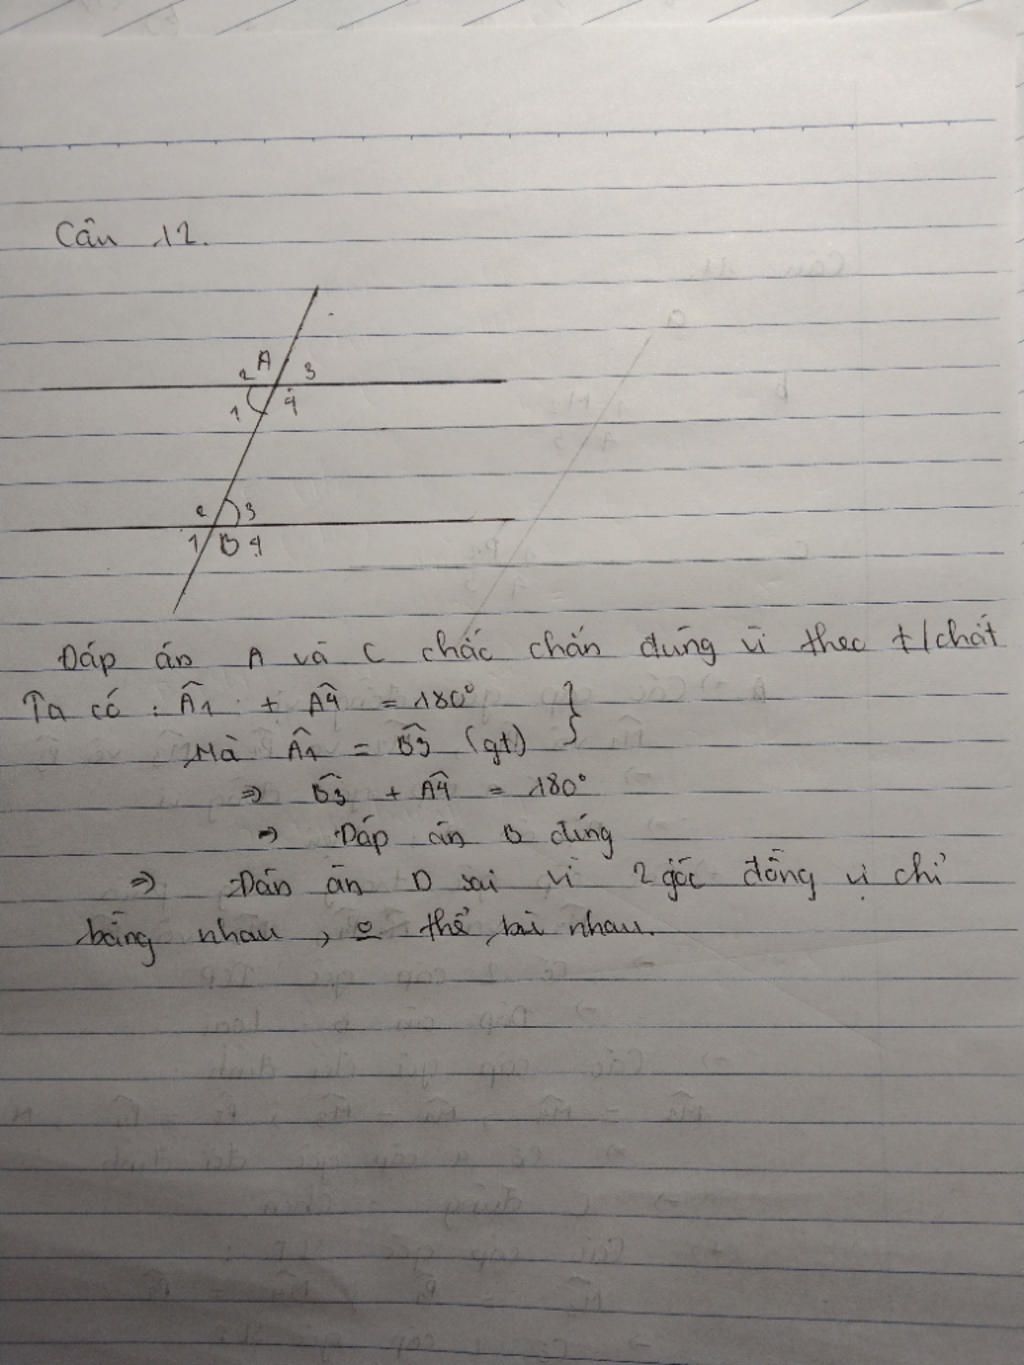 Câu 12.
A
2 3
1 4
2 3
1 B 4
Đáp án A và C chắc chắn đúng vì theo t/chất
Ta có : Â1 + Â4 = 180°
Mà Â1 = B̂3 (gt)
⇒ B̂3 + Â4 = 180°
⇒ Đáp án B đúng
⇒ Đán án D sai vì 2 góc đồng vị chỉ
bằng nhau, thể bù nhau.